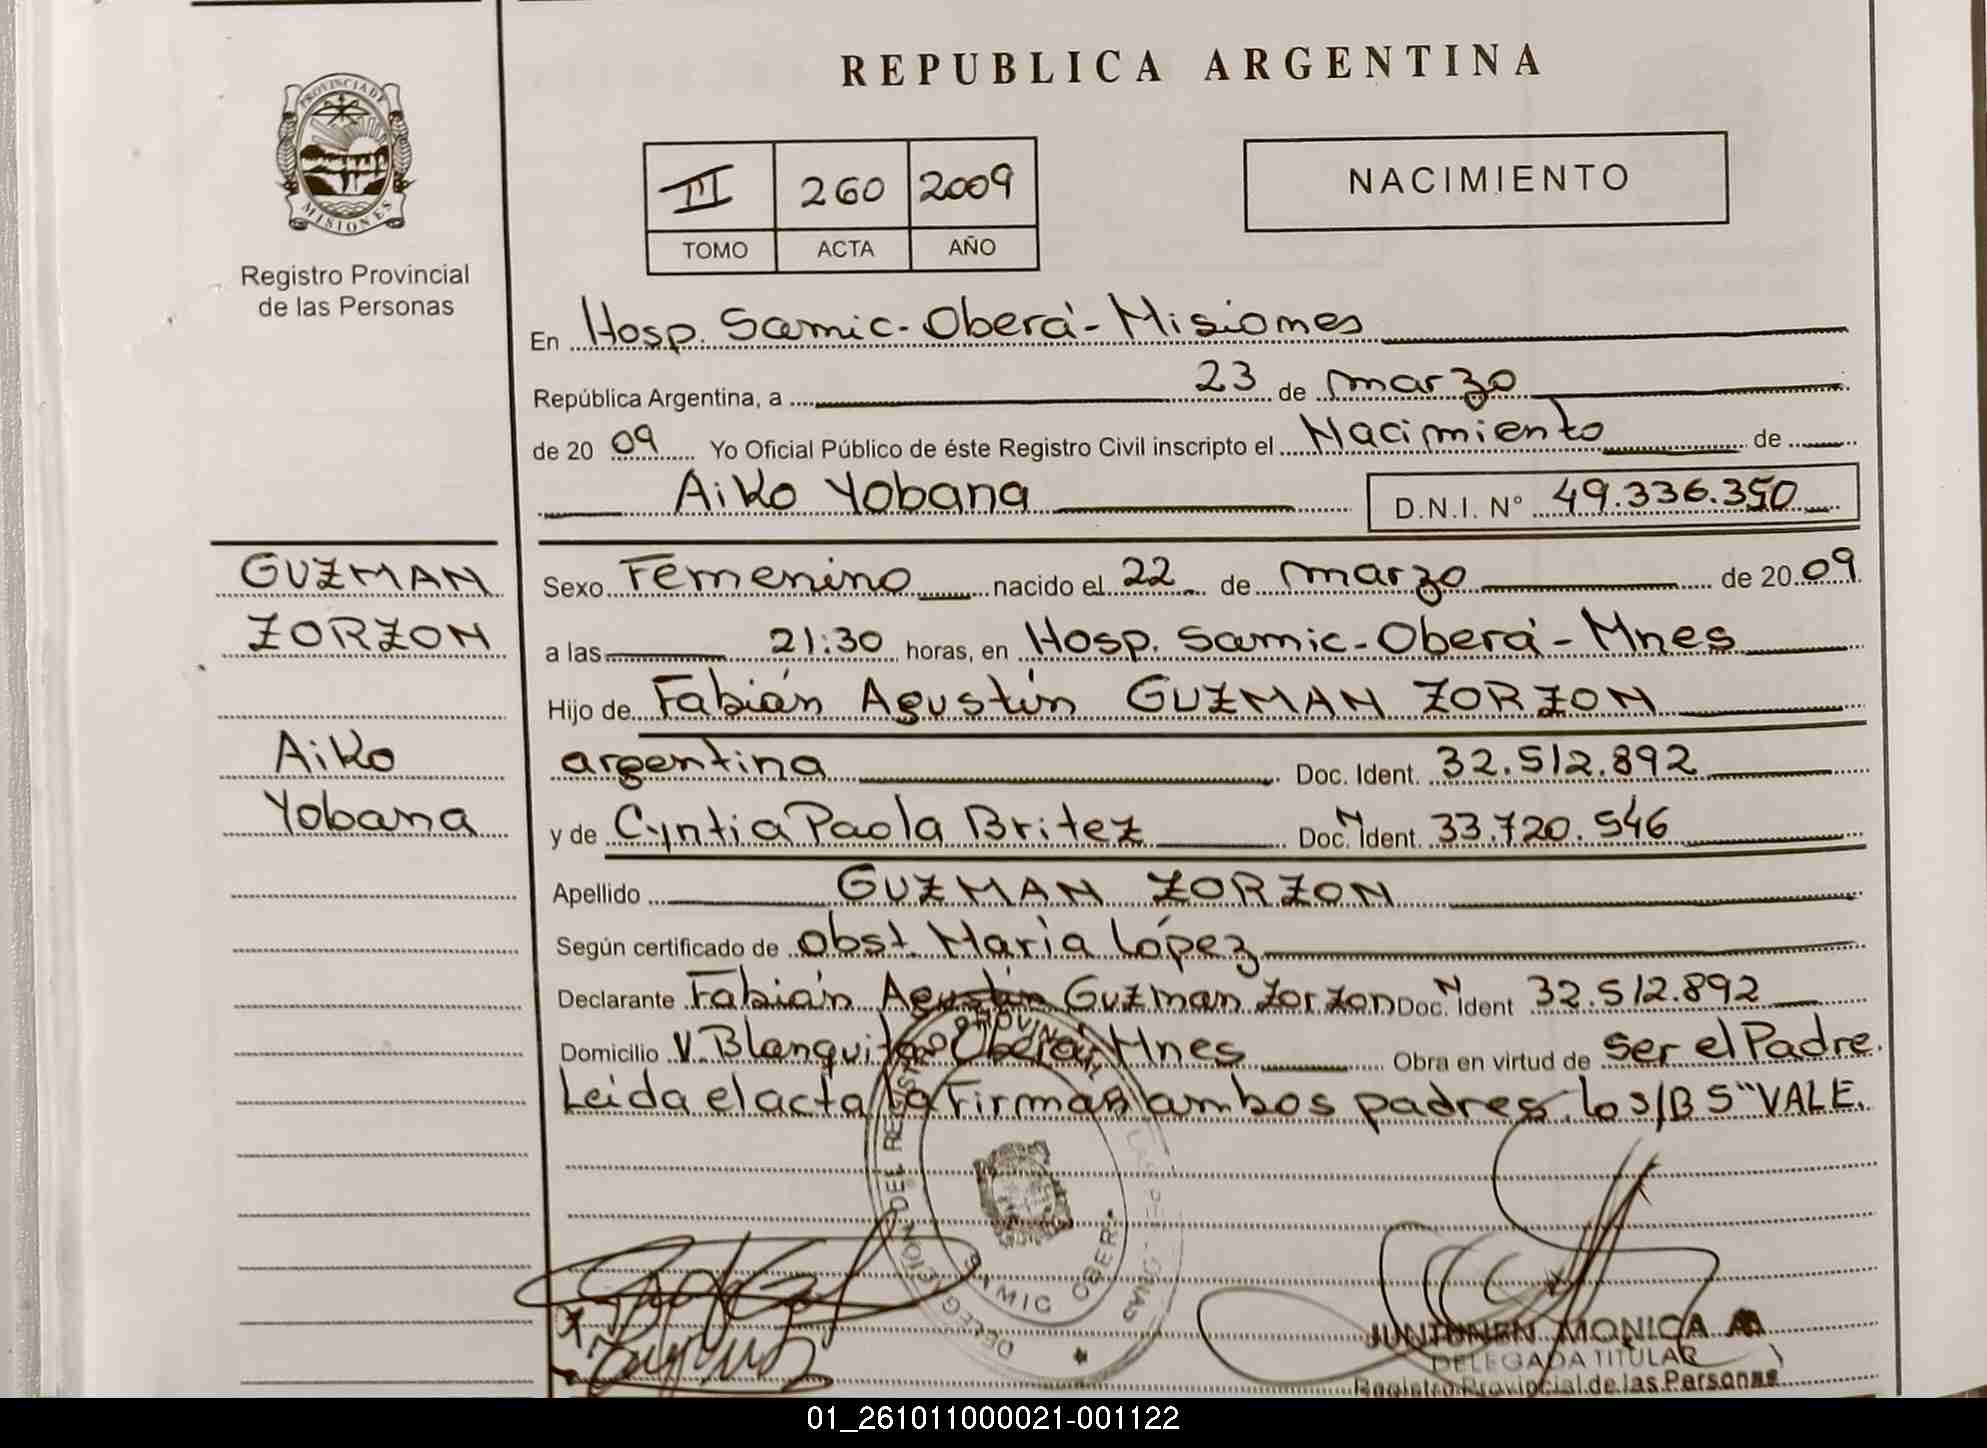 REPUBLICA ARGENTINA
PROVINCIA DE
MISIONES
Registro Provincial
de las Personas
III 260 2009
TOMO ACTA AÑO
NACIMIENTO
En Hosp. Samic - Oberá - Misiones
República Argentina, a 23 de marzo
de 20 09 Yo Oficial Público de éste Registro Civil inscripto el Nacimiento de
Aiko Yobana D.N.I. N° 49.336.350
GUZMAN
ZORZON
Aiko
Yobana
Sexo Femenino nacido el 22 de marzo de 20 09
a las 21:30 horas, en Hosp. Samic - Oberá - Mnes
Hijo de Fabián Agustín GUZMAN ZORZON
argentina Doc. Ident. 32.512.892
y de Cyntia Paola Britez Doc. N Ident. 33.720.546
Apellido GUZMAN ZORZON
Según certificado de obst. María López
Declarante Fabián Agustín Guzman Zorzon Doc. N Ident 32.512.892
Domicilio V. Blanquita Oberá, Mnes Obra en virtud de ser el Padre.
Leida el acta la Firman ambos padres. lo s/B 5 "VALE.
DELEGACION DEL REGISTRO PROVINCIAL DE LAS PERSONAS
SAMIC OBERA
JUNTUNEN MONICA A
DELEGADA TITULAR
Registro Provincial de las Personas
01_261011000021-001122